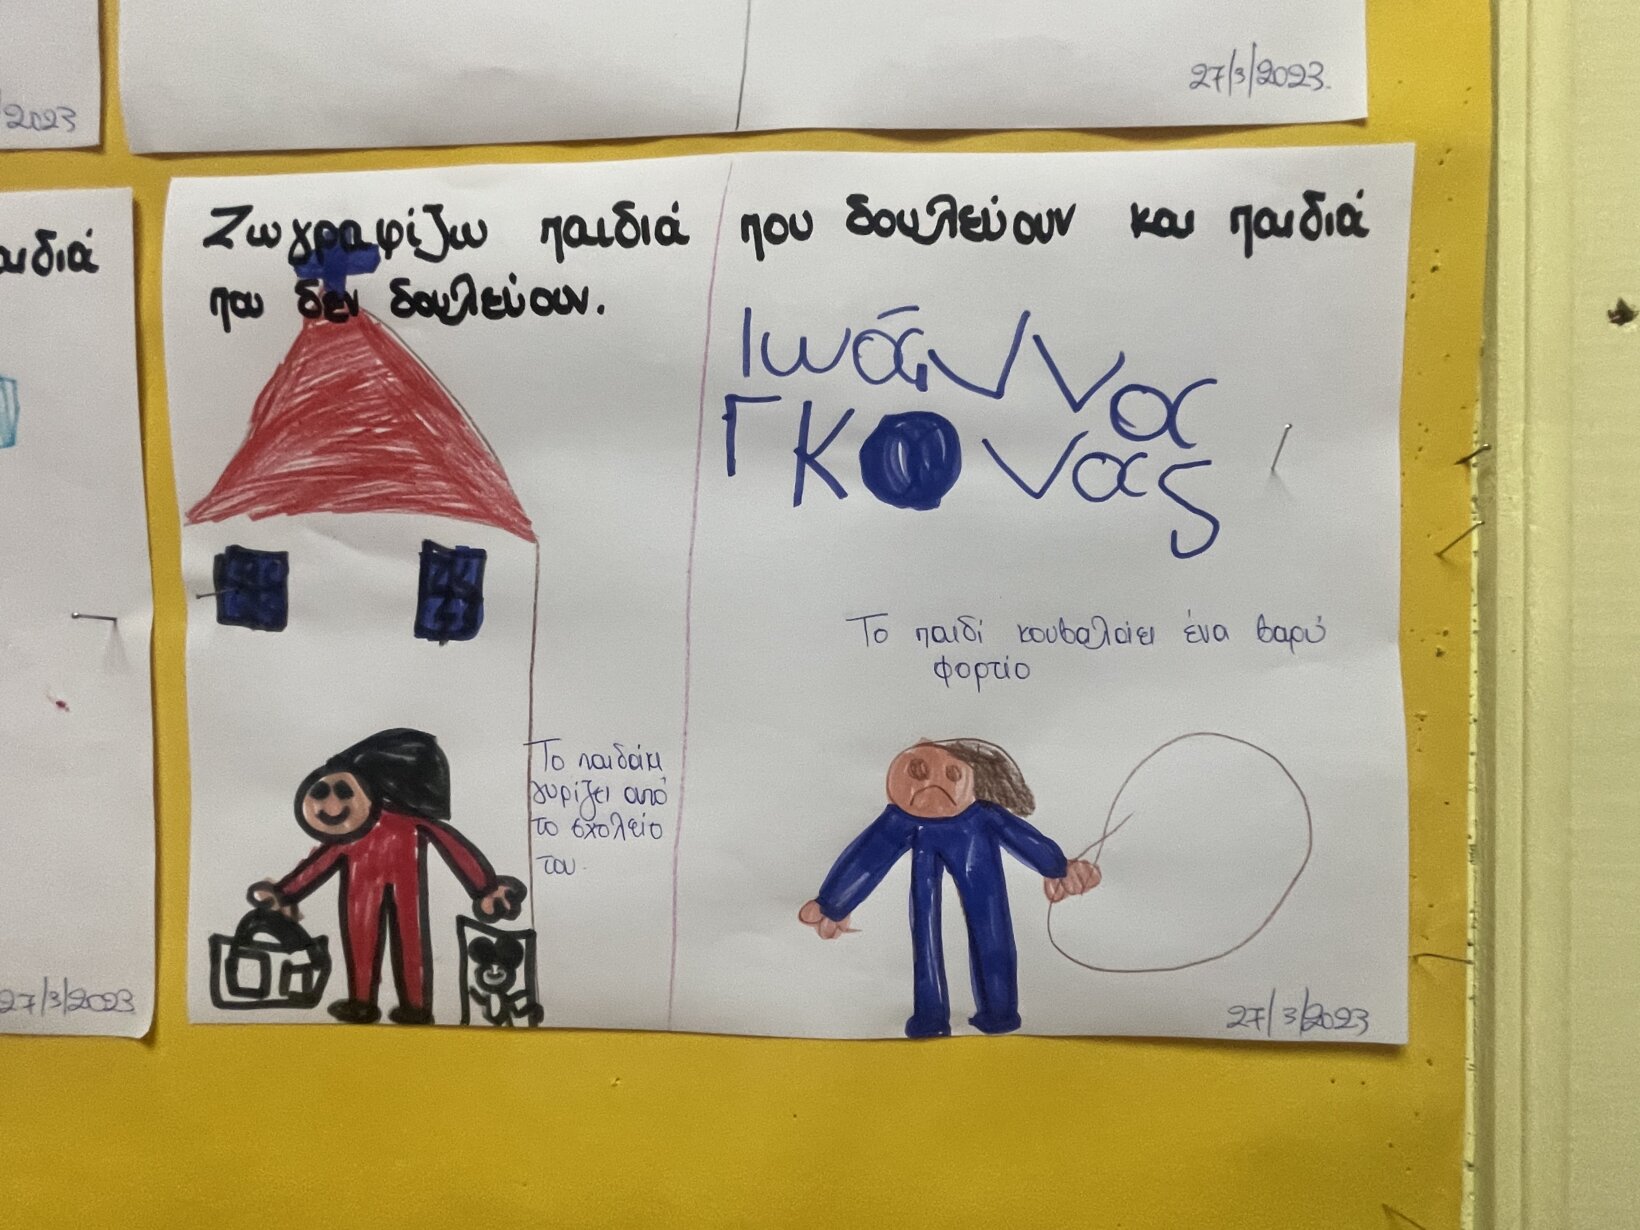 2023
27/3/2023.
αιδιά
27/3/2023
Ζωγραφίζω παιδιά που δουλεύουν και παιδιά
που δεν δουλεύουν.
Ιωάννας
Γκόνας
Το παιδί κουβαλάει ένα βαρύ
φορτίο
Το παιδάκι
γυρίζει από
το σχολείο
του.
27/3/2023